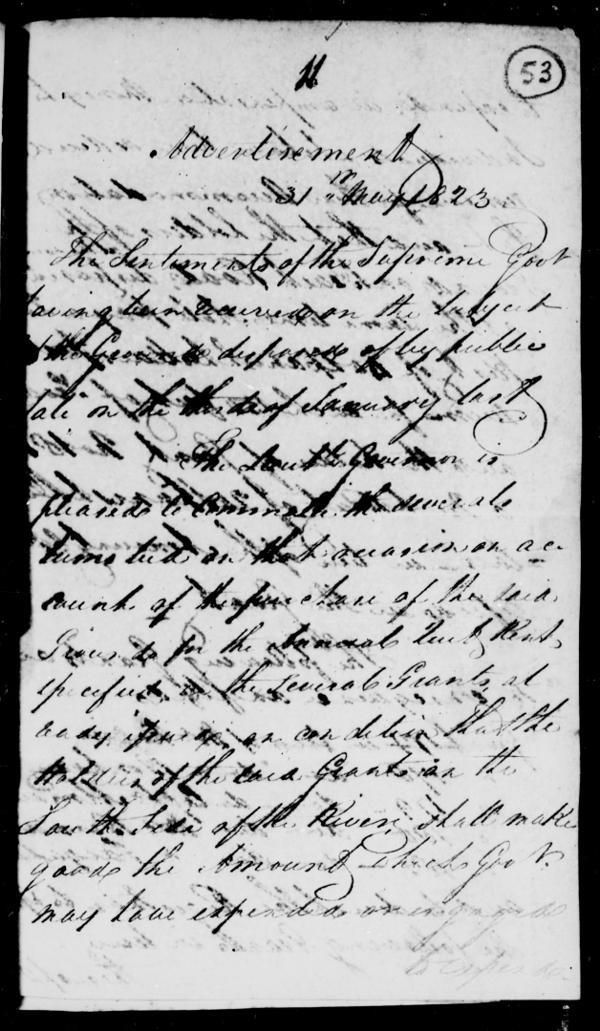 11
53
Advertisement
31st May 1823
The Sentiments of the Supreme Govt
having been received on the subject
of the Grounds disposed of by public
sale on the third of January last
The Lieut. Governor is
pleased to Commute the several
sums bid on that occasion on ac-
count of the purchase of the said
Grounds for the Annual Quit Rent
specified in the several Grants al
ready issued on condition that the
Holders of the said Grants on the
South Side of the River, shall make
good the Amount which Govt.
may have expended or engaged
to expend